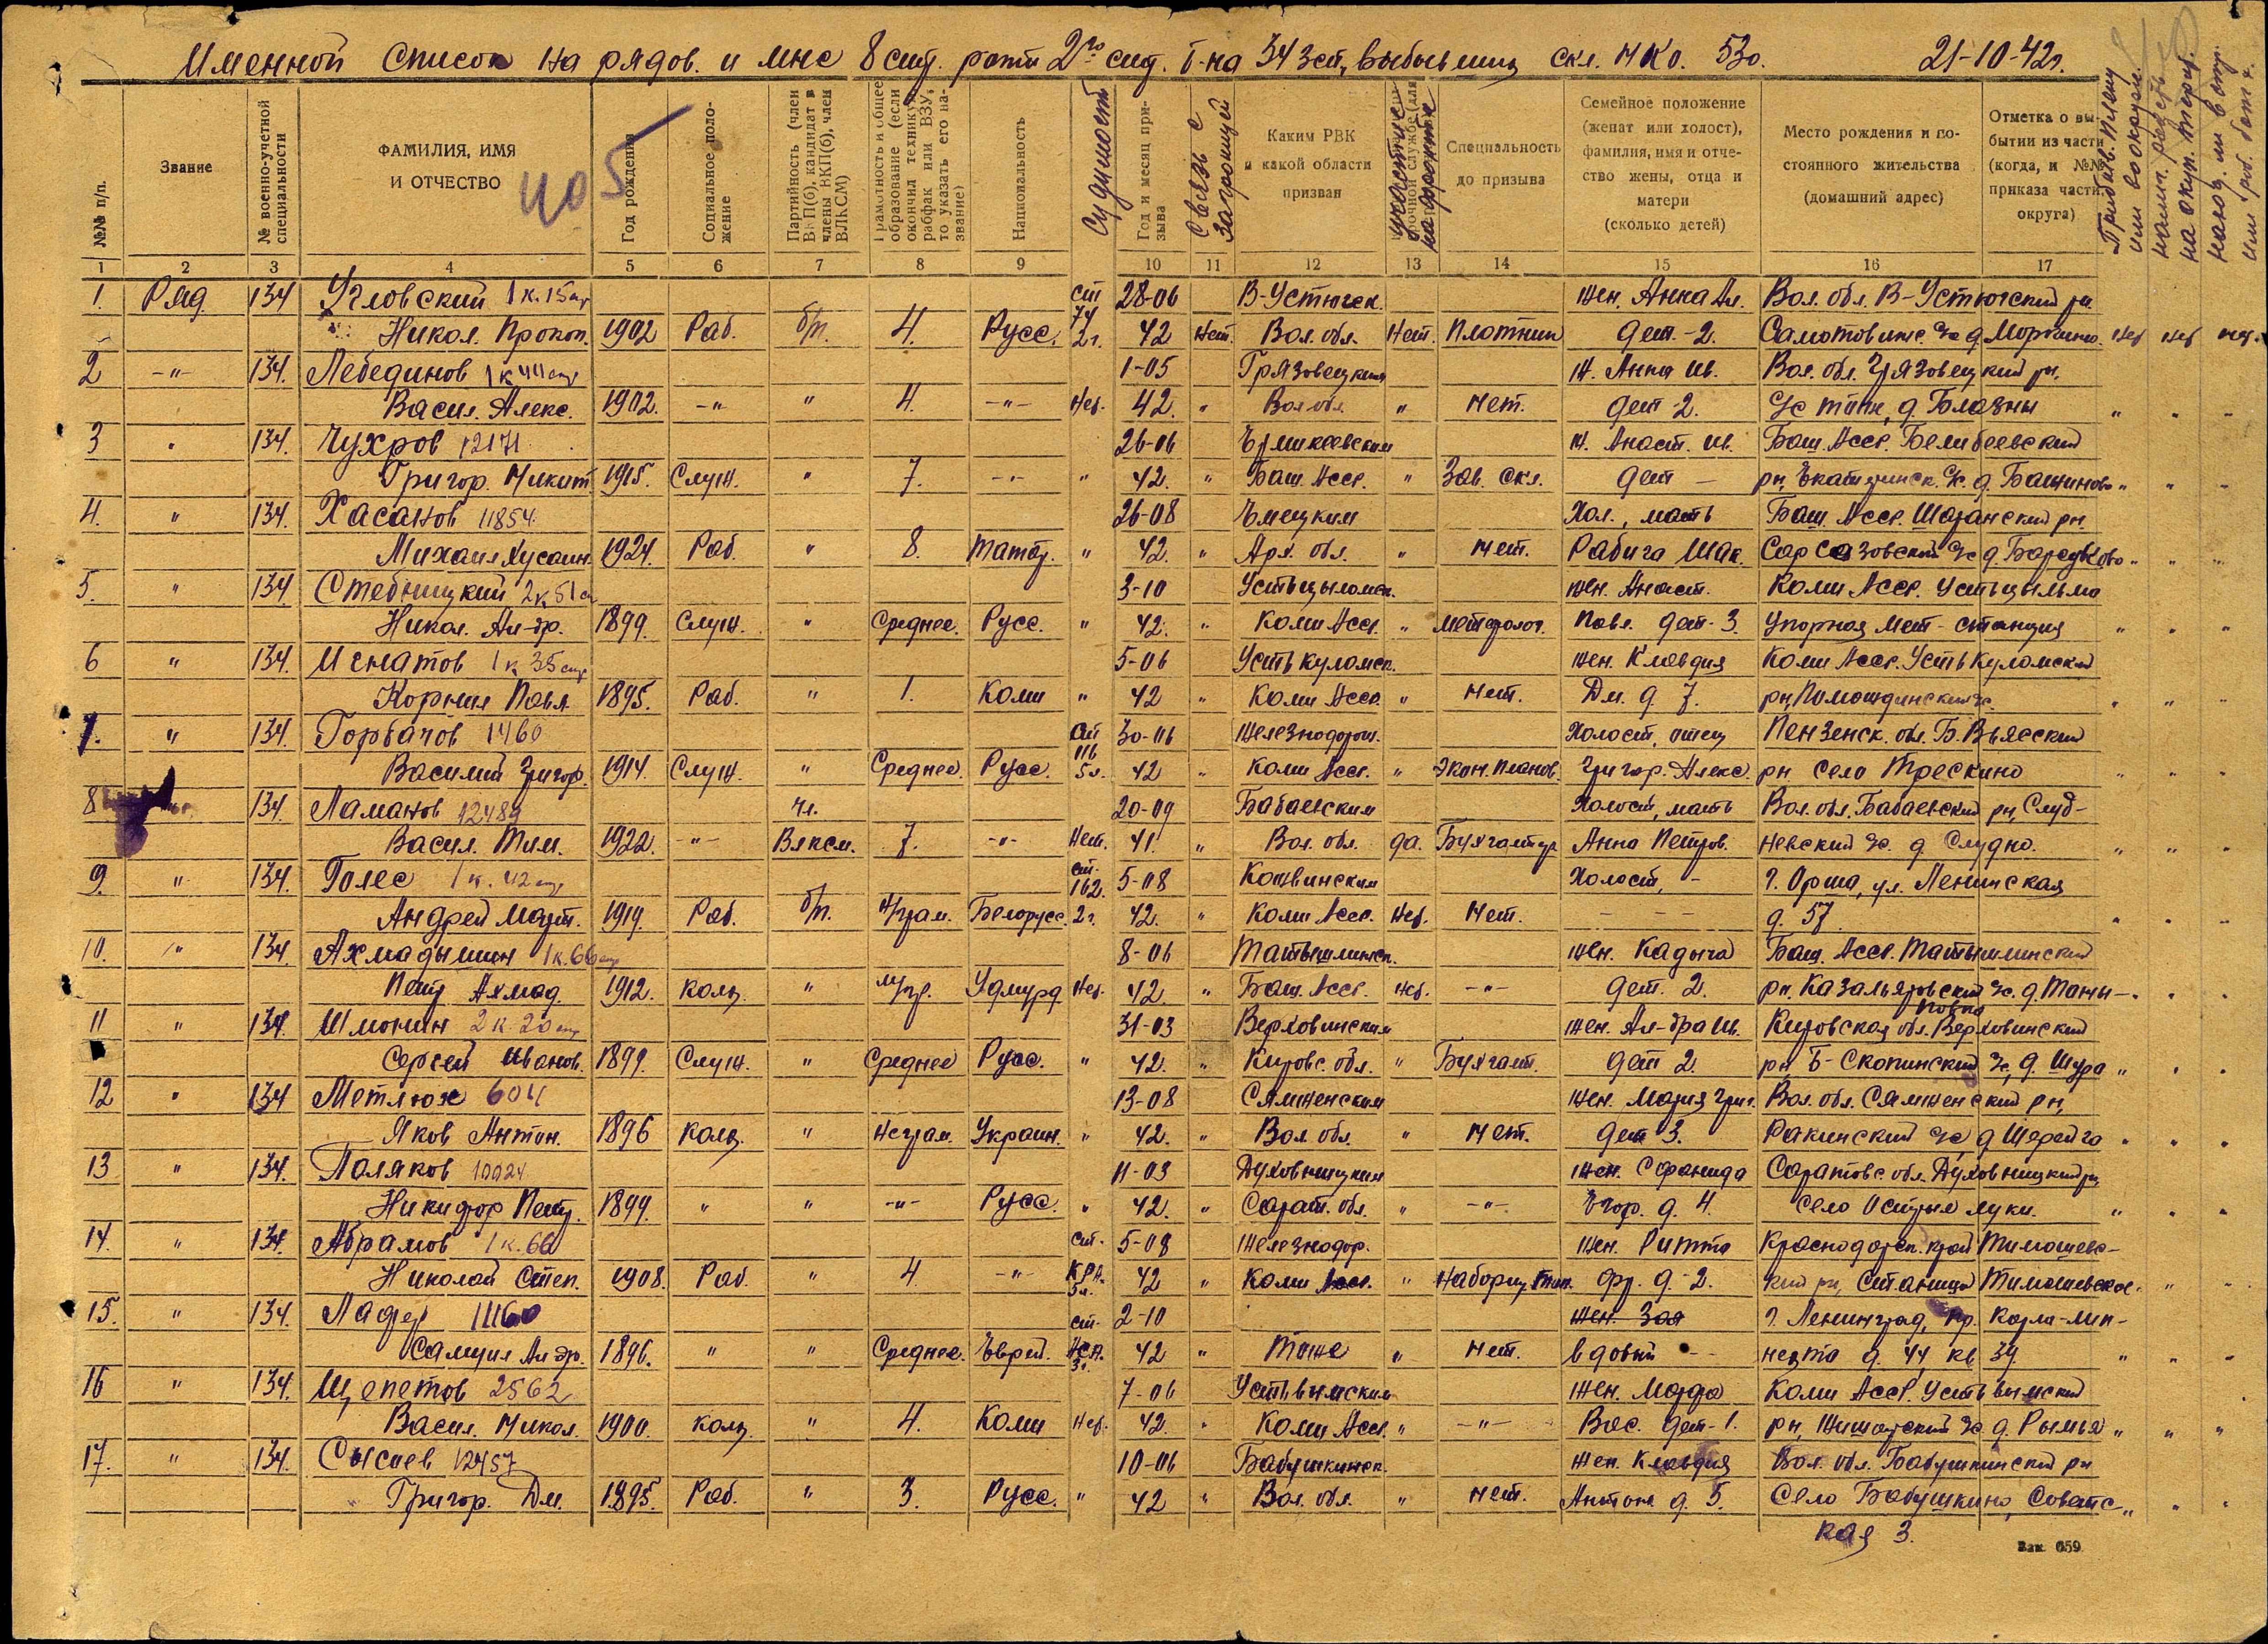 Именной список на рядов. и мнс 8 стр. роты 2го стр. б-на 34 зсп, выбывших скл. НКО. 530. 21-10-42г.
№№ п/п.
Звание
№ военно-учетной специальности
ФАМИЛИЯ, ИМЯ
И ОТЧЕСТВО
405
Год рождения
Социальное поло-
жение
Партийность (член
ВКП(б), кандидат в
члены ВКП(б), член
ВЛКСМ)
Грамотность и общее
образование (если
окончил техникум,
рабфак или ВЗУ,
то указать его на-
звание)
Национальность
Судимость
Год и месяц при-
зыва
Связь с
заграницей
Каким РВК
и какой области
призван
участие
на фронте
Специальность
до призыва
Семейное положение
(женат или холост),
фамилия, имя и отче-
ство жены, отца и
матери
(сколько детей)
Место рождения и по-
стоянного жительства
(домашний адрес)
Отметка о вы-
бытии из части
(когда, и №№
приказа части,
округа)
1 2 3 4 5 6 7 8 9 10 11 12 13 14 15 16 17
1. Ряд. 134 Угловский 1к.15стр ст 74 28-06 В-Устюгск. Жен. Анна Ал. Вол. обл. В-Устюгский рн.
Никол. Прокоп. 1902 Раб. б/п. 4. Русс. 2г. 42 Нет. Вол. обл. Нет. Плотник дет.-2. нет нет нет.
2 -"- 134. Лебединов 1к44стр 1-05 Грязовецким Ж. Анна Ив. Вол. обл. Грязовецкий рн.
Васил. Алекс. 1902. -"- " 4. -"- Нет. 42. " Вол обл. " нет. дет-2. " " "
3 " 134. Чухров 12171 26-06 Ермикеевским Ж. Анаст. Ив. Баш. Асср. Белибеевский
Григор. Никит. 1915. Служ. " 7. -"- " 42. " Баш. Асср. " Зав. скл. дет — рн, с/с. д. " " "
4. " 134. Хасанов 11854 26-08 Емецким Хол., мать Баш. Асср. Шаранский рн
Михаил Хусаин. 1924. Раб. " 8. Татар. " 42. " Арх. обл. " нет. Рабига Шак. с/с д. " " "
5. " 134 Стебницкий 2к51стр 3-10 Устьцыломск. Жен. Анаст. Коми Асср. Устьцыльма
Никол. Ал-др. 1899. Служ. " Среднее. Русс. " 42. " Коми Асср. " метеоролог. Павл. дет-3. Упорная мет-станция " " "
6 " 134. Игнатов 1к35стр 5-06 Усть куломск. Жен. Клавдия Коми Асср. Усть Куломский
Корнил Павл. 1895. Раб. " 1. Коми " 42 " Коми Асср. " нет. Дм. д 7. рн, Помоздинский с/с. " " "
7. " 134. Горбачов 1460 ст 116 30-06 Железнодорож. Холост, отец Пензенск. обл. Б. Вьясский
Василий Григор. 1914. Служ. " Среднее. Русс. 5л. 42 " Коми Асср. " Экон. планов. Григор. Алекс. рн село Трескино " " "
8 134. Ламанов 12489 чл. 20-09 Бабаевским Холост, мать Вол. обл. Бабаевский рн, Слуд-
Васил. Тим. 1922. -"- Влксм. 7. -"- Нет. 41. " Вол. обл. да. Бухгалтер Анна Петров. невский с/с. д. Слудно. " " "
9. " 134. Голес 1к.42стр ст. 162. 5-08 Кожвинским Холост, - г. Орша, ул. Ленинская
Андрей Март. 1919. Раб. б/п. н/грам. Белорусс. 2г. 42. " Коми Асср. Нет. Нет. - - - д. 57. " " "
10. " 134 Ахмадышин 1к.66стр 8-06 Татышлинск. Жен. Кадыча Баш. Асср. Татышлинский
Петр. Ахмад. 1912. колх. " м/гр. Удмурд Нет. 42. " Баш. Асср. нет. -"- дет. 2. рн. Казальяровский с/с. д. Таны- " "
повка
11 " 134. Шмонин 2к 20стр 31-03 Верховинским Жен. Ал-дра Ив. Кировская обл. Верховинский
Сергей Иванов. 1899. Служ. " Среднее Русс. " 42. " Кировс. обл. " Бухгалт. дет 2. рн Б-Скопинский с/с, д. Шура " " "
12 " 134 Метлюк 604 13-08 Сямженским Жен. Мария Григ. Вол. обл. Сямженский рн,
Яков Антон. 1896 колх. " Неграм. Украин. " 42. " Вол. обл. " нет. дет 3. Ракинский с/с, д " " "
13 " 134. Поляков 10024 11-03 Духовницким Жен. Сфанида Саратовс. обл. Духовницкий рн,
Никифор Петр. 1899. " " -"- Русс. " 42. " Сарат. обл. " -"- Егор. д. 4. Село Острые луки. " " "
14. " 134. Абрамов 1к.66 ст. 5-08 Железнодор. Жен. Ритта Краснодарск. край Тимошевс-
Николай Степ. 1908. Раб. " 4. -"- КРА. 5л. 42 " Коми Асср. " Наборщ. Тип. Фр. д-2. кий рн, Станица Тимошевская. " "
15. " 134. Лафер 11160 ст. 2-10 Жен. Зоя г. Ленинград, Пр. Карла-Либ-
Самуил Ал др. 1896. " " Среднее. Еврей. АСА. 3г. 42 " Тоже " нет. вдовый - нехта д. 44 кв 39. " " "
16 " 134. Щепетов 2562 7-06 Устьвымским Жен. Марфа Коми Асср. Усть вымский
Васил. Никол. 1900. колх. " 4. Коми Нет. 42. " Коми Асср. " -"- Вас. дет-1. рн, с/с д. " " "
17. " 134. Сысоев 12457 10-06 Бабушкинск. Жен. Клавдия Вол. обл. Бабушкинский рн
Григор. Дм. 1895. Раб. " 3. Русс. " 42 " Вол. обл. " нет. Антон. д. 5. Село Бабушкино, Советс- " " "
кая 3.
Зак. 659